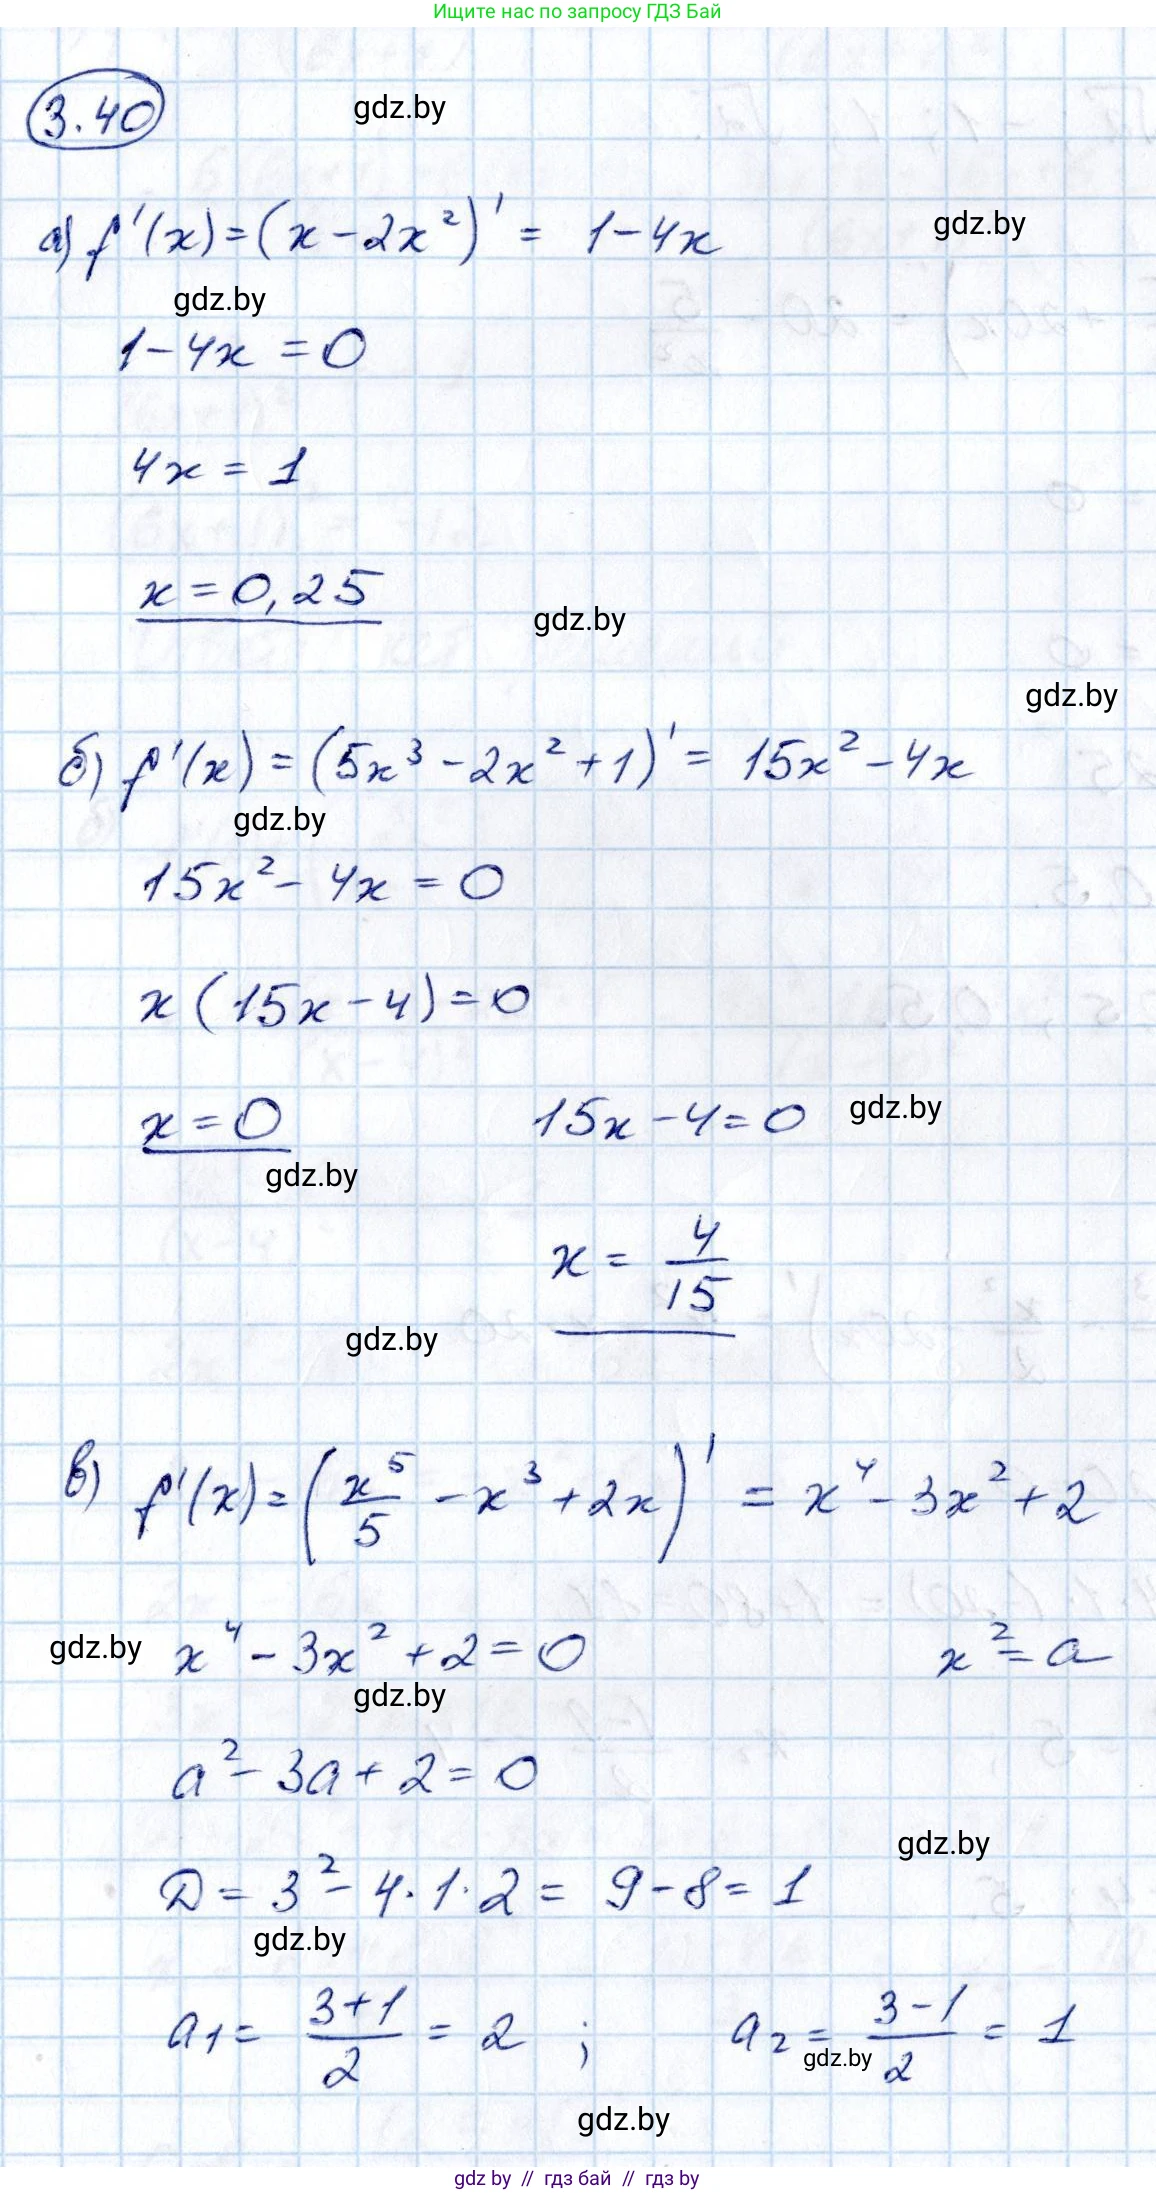 Ищите нас по запросу ГДЗ Бай
3.40
gdz.by
а) f'(x) = (x - 2x²)' = 1 - 4x
gdz.by
gdz.by
1 - 4x = 0
4x = 1
x = 0,25
gdz.by
gdz.by
б) f'(x) = (5x³ - 2x² + 1)' = 15x² - 4x
gdz.by
15x² - 4x = 0
x (15x - 4) = 0
x = 0 15x - 4 = 0
gdz.by
gdz.by
x = 4/15
gdz.by
в) f'(x) = (x⁵/5 - x³ + 2x)' = x⁴ - 3x² + 2
gdz.by
x⁴ - 3x² + 2 = 0 x² = a
gdz.by
a² - 3a + 2 = 0
gdz.by
D = 3² - 4 · 1 · 2 = 9 - 8 = 1
gdz.by
a₁ = (3+1)/2 = 2 ; a₂ = (3-1)/2 = 1
gdz.by
gdz.by
gdz by // гдз бай // гдз by